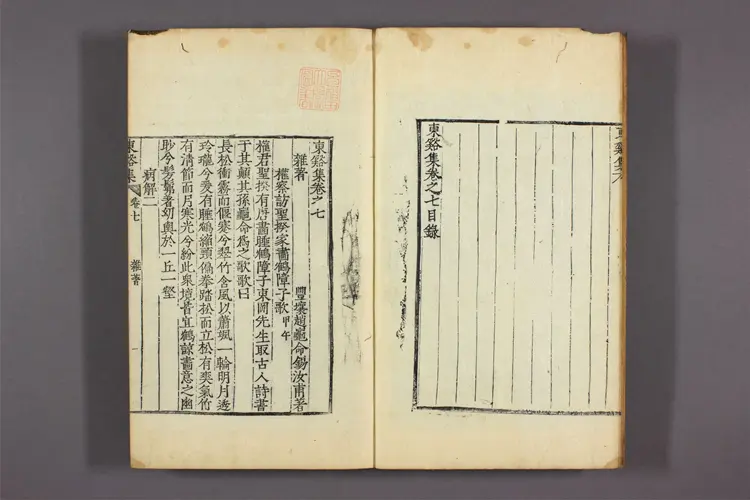 東谿集卷之七目錄
東谿集卷之七
雜著 豐壤趙龜命錫汝甫著
權察訪聖揆家畵鶴障子歌甲午
權君聖揆有唐畵睡鶴障子東岡先生取古人詩書
于其顚其孫龜命爲之歌歌曰
長松衝霄而偃蹇兮翠竹含風以蕭颯一輪明月透
玲瓏兮爰有睡鶴縮頭偏拳踏松而立松有爽氣竹
有淸節而月寒光兮紛此衆境皆宜鶴諒畵意之幽
眇兮髣髴者幼輿於一丘一壑
病解二
東谿集 卷七 雜著 一